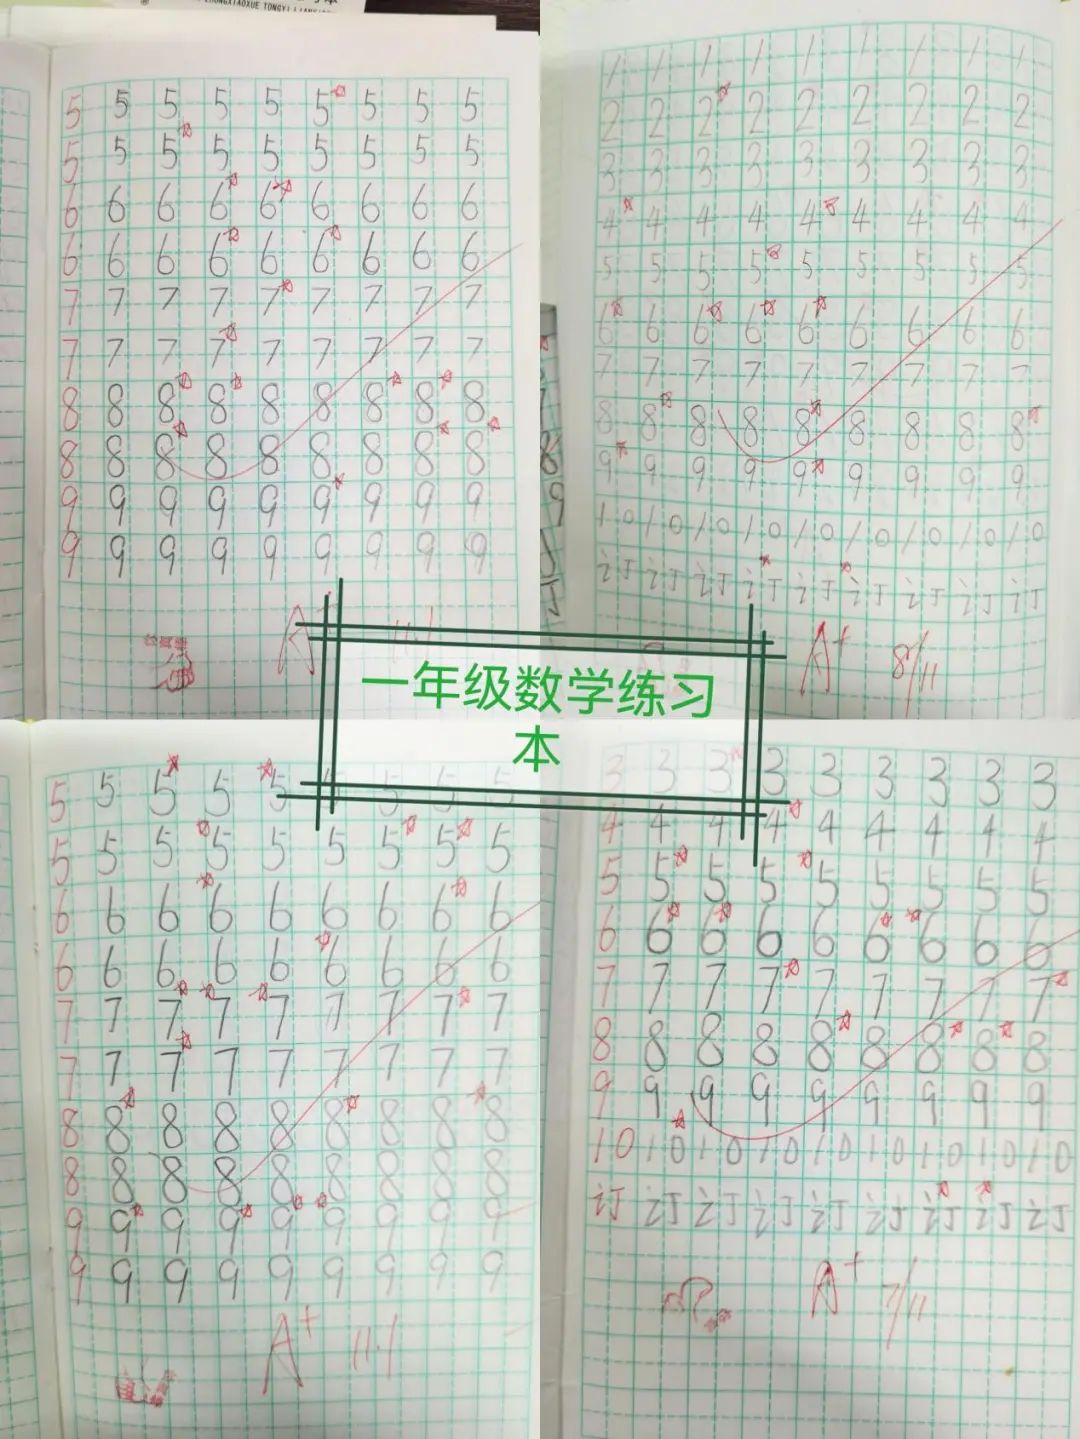 ZHONGXIAOXUE TONGYI LIAN
5 5 5 5 5 5 5 5 5
5 5 5 5 5 5 5 5 5
6 6 6 6 6 6 6 6 6
6 6 6 6 6 6 6 6 6
7 7 7 7 7 7 7 7 7
7 7 7 7 7 7 7 7 7
8 8 8 8 8 8 8 8 8
8 8 8 8 8 8 8 8 8
9 9 9 9 9 9 9 9 9
9 9 9 9 9 9 9 9 9
A+ 11.1
1 1 1 1 1 1 1 1 1
2 2 2 2 2 2 2 2 2
3 3 3 3 3 3 3 3 3
4 4 4 4 4 4 4 4 4
5 5 5 5 5 5 5 5 5
6 6 6 6 6 6 6 6 6
7 7 7 7 7 7 7 7 7
8 8 8 8 8 8 8 8 8
9 9 9 9 9 9 9 9 9
10 10 10 10 10 10 10 10 10
订 订 订 订 订 订 订 订 订
A+ 8/11
一年级数学练习
本
5 5 5 5 5 5 5 5 5
5 5 5 5 5 5 5 5 5
6 6 6 6 6 6 6 6 6
6 6 6 6 6 6 6 6 6
7 7 7 7 7 7 7 7 7
7 7 7 7 7 7 7 7 7
8 8 8 8 8 8 8 8 8
8 8 8 8 8 8 8 8 8
9 9 9 9 9 9 9 9 9
9 9 9 9 9 9 9 9 9
A+ 11.1
3 3 3 3 3 3 3 3 3
4 4 4 4 4 4 4 4 4
5 5 5 5 5 5 5 5 5
6 6 6 6 6 6 6 6 6
7 7 7 7 7 7 7 7 7
8 8 8 8 8 8 8 8 8
9 9 9 9 9 9 9 9 9
10 10 10 10 10 10 10 10 10
订 订 订 订 订 订 订 订 订
A+ 7/11